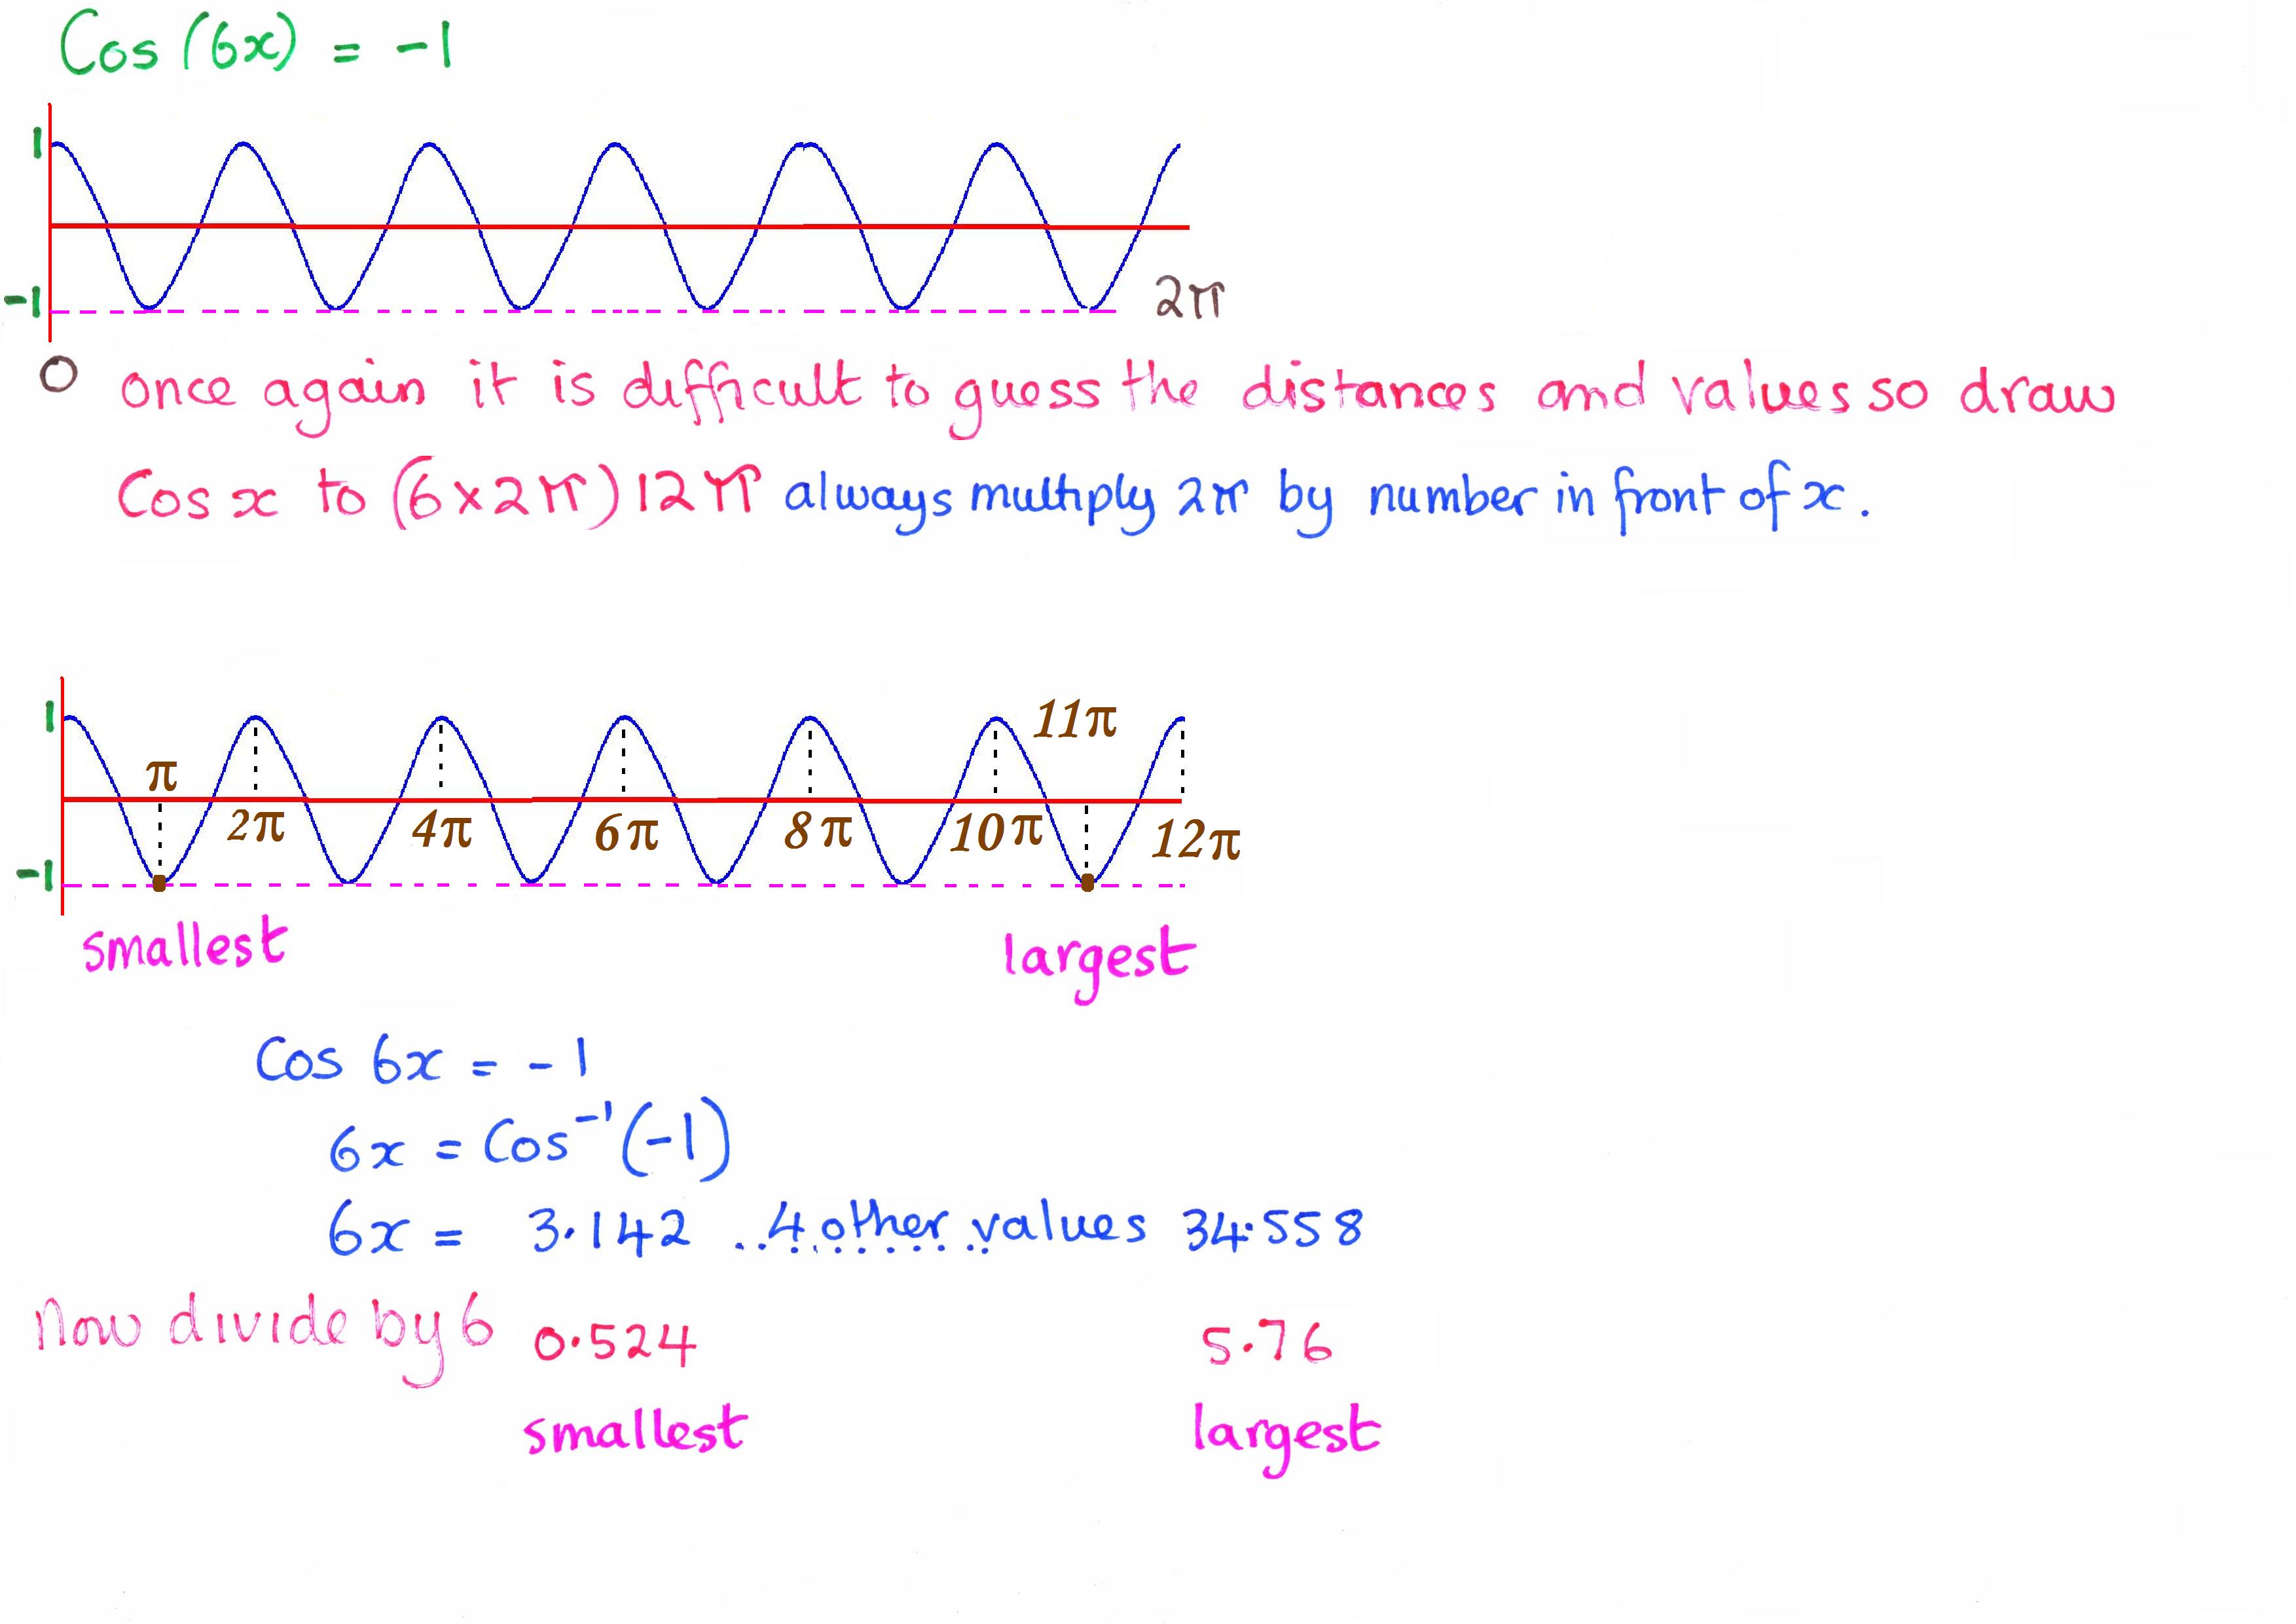 Cos (6x) = -1
1
-1
2π
0 once again it is difficult to guess the distances and values so draw
Cos x to (6×2π) 12π always multiply 2π by number in front of x.
1
11π
π
2π 4π 6π 8π 10π 12π
-1
smallest largest
Cos 6x = -1
6x = Cos⁻¹(-1)
6x = 3.142 ..4 other values 34.558
Now divide by 6 0.524 5.76
smallest largest